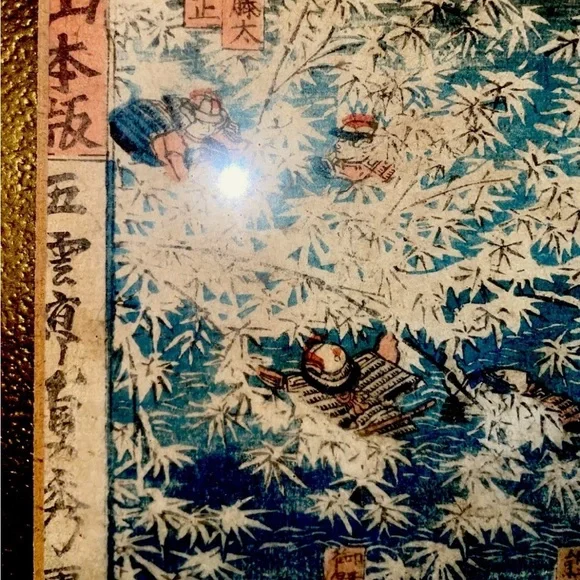 山本版
五雲亭貞秀画
藤太
正
御